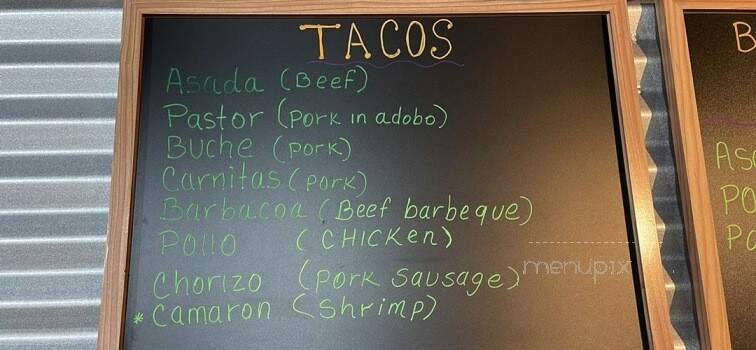 TACOS
Asada (Beef)
Pastor (Pork in adobo)
Buche (pork)
Carnitas (pork)
Barbacoa (Beef barbeque)
Pollo (CHICKen)
Chorizo (pork sausage)
* Camaron (shrimp)
menupix
B
Asa
PO
Po